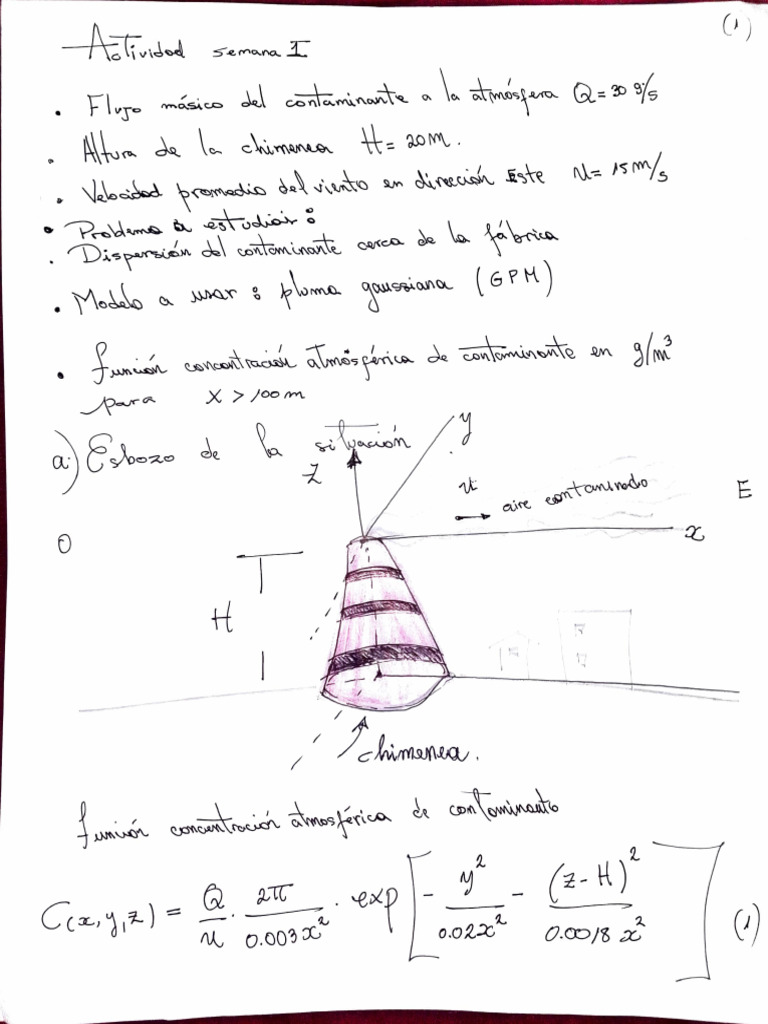 (1)
Actividad semana I
• Flujo másico del contaminante a la atmósfera Q = 30 g/s
• Altura de la chimenea H = 20 m.
• Velocidad promedio del viento en dirección Este u = 15 m/s
• Problema a estudiar :
• Dispersión del contaminante cerca de la fábrica
• Modelo a usar : pluma gaussiana (GPM)
• función concentración atmosférica de contaminante en g/m³
para x > 100 m
a) Esbozo de la situación
y
z
u
aire contaminado
E
O
x
H
chimenea.
función concentración atmosférica de contaminante
C(x,y,z) = Q/u · 2π/0.003x² · exp [ - y²/0.02x² - (z-H)²/0.0018x² ] (1)